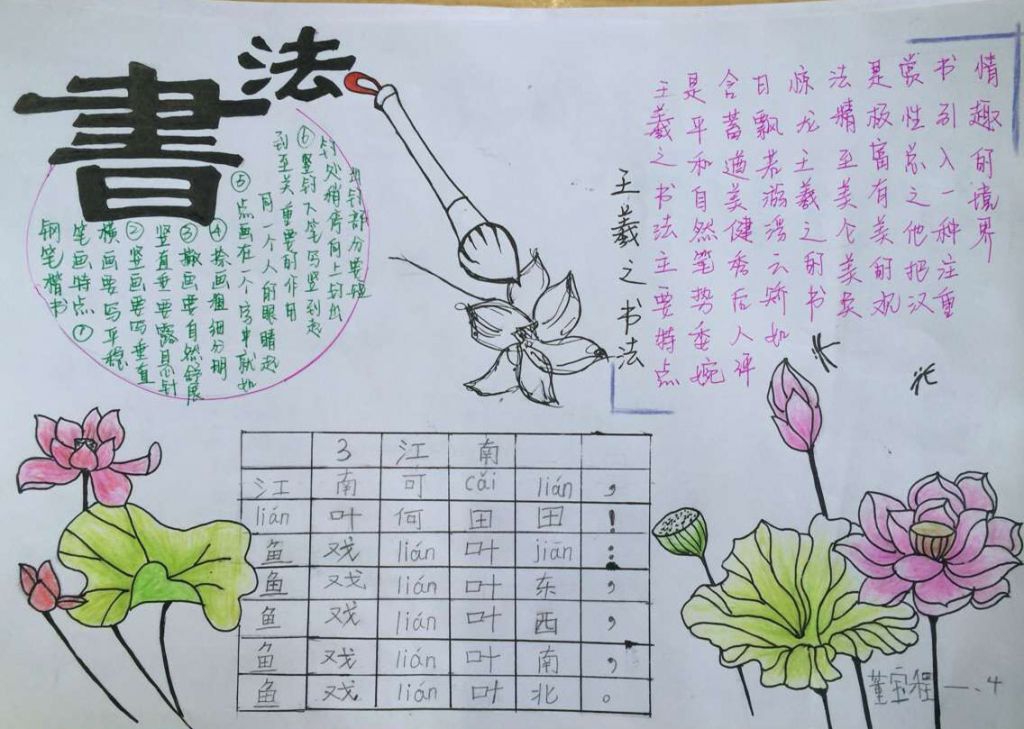 書法
钢笔楷书
笔画特点①
横画要写平稳
②竖画要写垂直
竖直垂要露悬针
③撇画要自然舒展
④捺画粗细分明
⑤点画在一个字中就如
同一个人的眼睛起
到至关重要的作用
⑥竖钩下笔写竖到起
钩处稍停向上钩出
王羲之书法
王羲之书法主要特点
是平和自然笔势委婉
含蓄遒美健秀后人评
曰飘若游荡云娇如
惊龙王羲之的书
法精至美仑美奂
是极富有美的观
赏性总之他把汉
书引入一种注重
情趣的境界
3 江南
江南可cǎi lián，
lián叶何田田！
鱼戏lián叶jiān：
鱼戏lián叶东，
鱼戏lián叶西，
鱼戏lián叶南，
鱼戏lián叶北。
董宝程 一、4